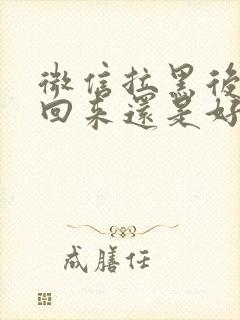 微信拉黑後
回來還是好
成膳任